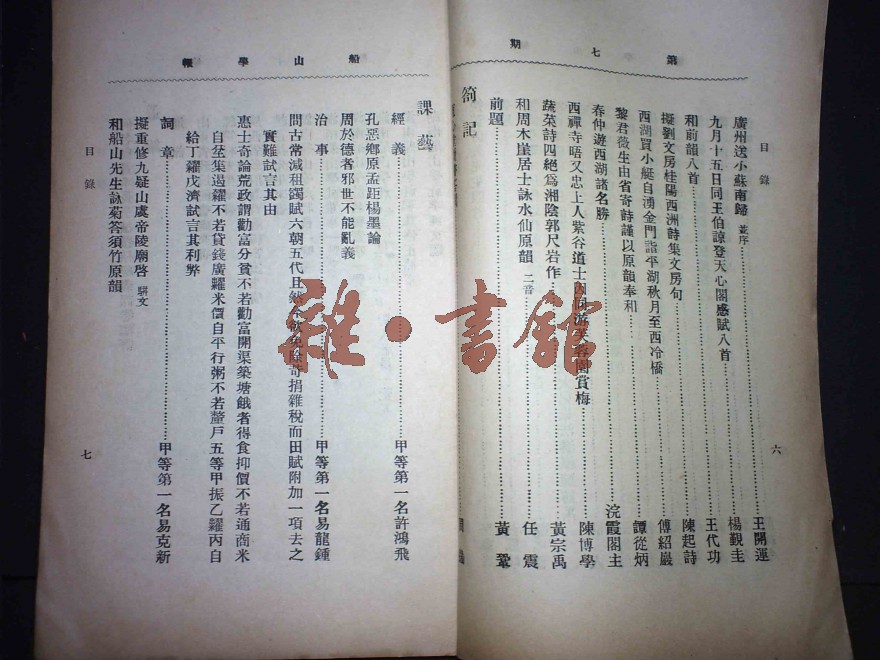 第七期
目錄
廣州送小蘇南歸 並序 王開運
九月十五日同王伯諒登天心閣感賦八首 楊覲圭
和前韻八首 王代功
擬劉文房桂陽西洲詩集文房句 陳起詩
西湖買小艇自湧金門詣平湖秋月至西冷橋 傅紹巖
黎君薇生由省寄詩謹以原韻奉和 譚從炳
春仲遊西湖諸名勝 浣霞閣主
西禪寺晤又忠上人紫谷道士因同游芙蓉園賞梅 陳博學
蔬菜詩四絕爲湘陰郭尺岩作 黃宗禹
和周木崖居士詠水仙原韻 二首 任震
前題 黃鞏
劄記
六
船山學報
課藝
經義 甲等第一名許鴻飛
孔惡鄉原孟距楊墨論
周於德者邪世不能亂義
治事 甲等第一名易龍鍾
問古常減租蠲賦六朝五代且然今欲免除苛捐雜稅而田賦附加一項去之
實難試言其由
惠士奇論荒政謂勸富分貧不若勸富開渠築塘餓者得食抑價不若通商米
自坌集遏糴不若貸錢廣糴米價自平行粥不若釐戶五等甲振乙糴丙自
給丁糴戊濟試言其利弊
詞章 甲等第一名易克新
擬重修九疑山虞帝陵廟啓 駢文
和船山先生詠菊答須竹原韻
目錄
七
雜·書館